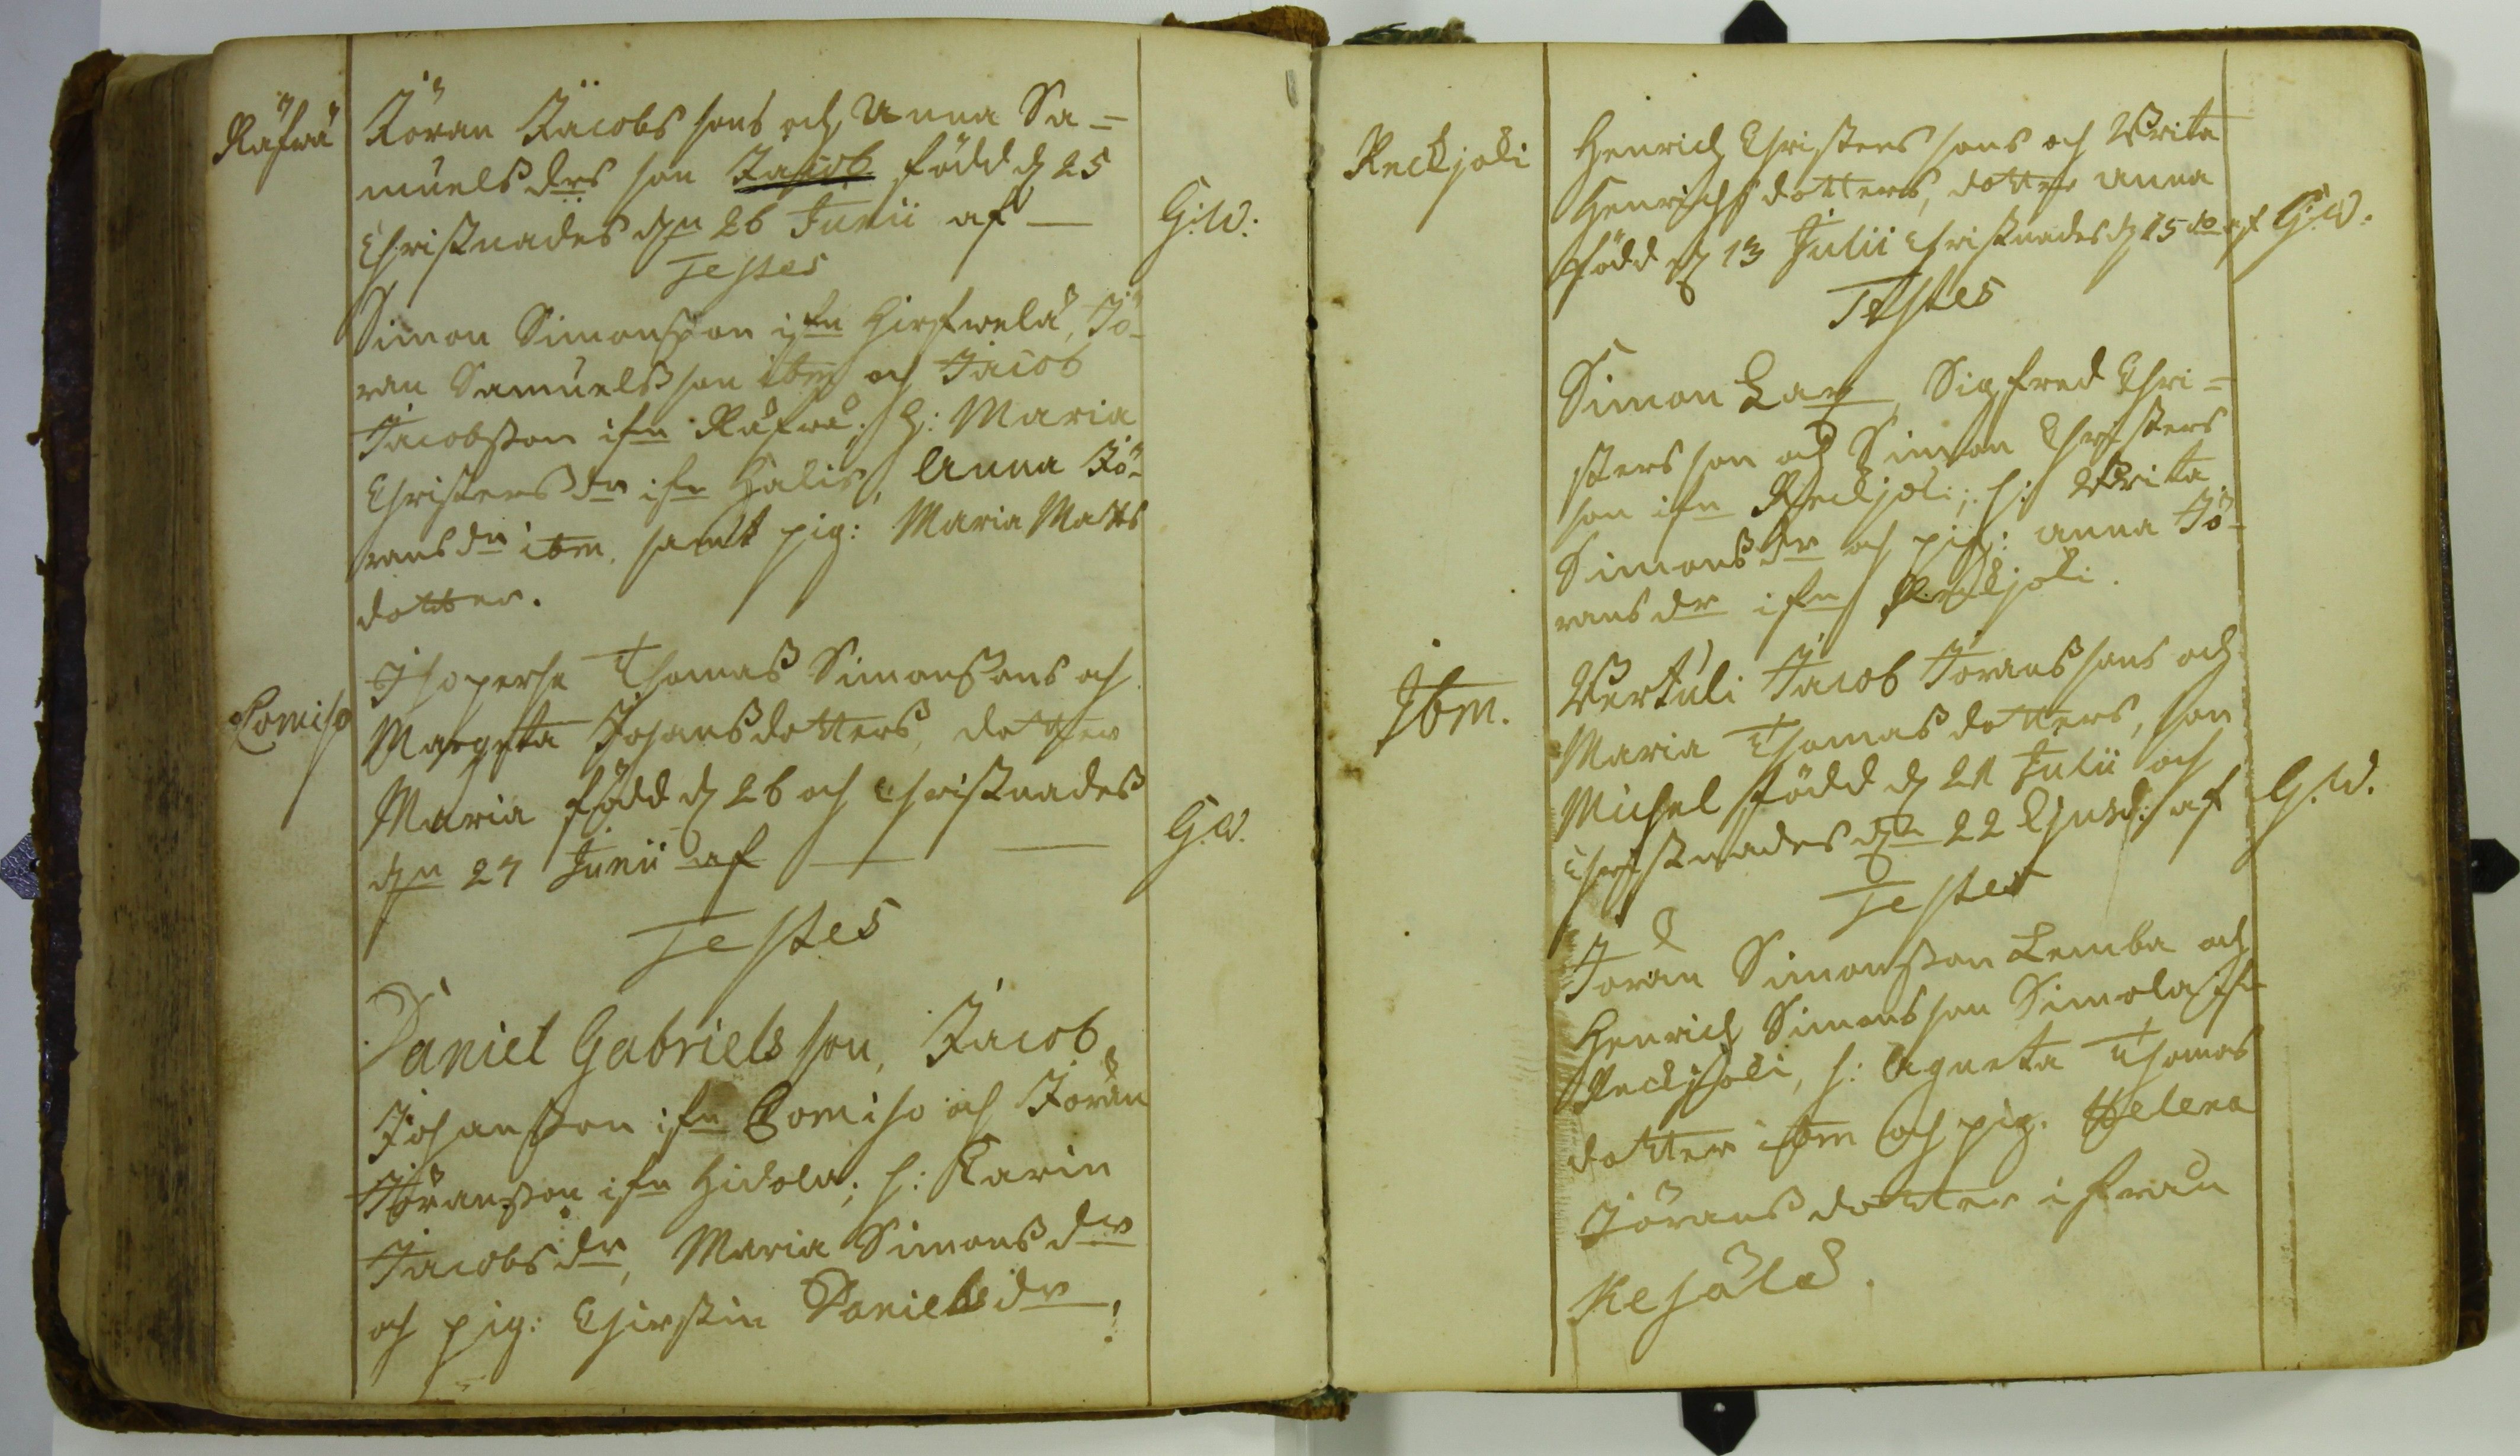 Räfwä
Jöran Jacobssons och Anna Sa=
muelsdrs son Jacob född d 25
Christnades den 26 Junii af —
G:W:
Testes
Simon Simonsson ifrn Hirfwelä, Jö-
ran Samuelsson ibm och Jacob
Jacobsson ifrn Räfwä; H: Maria
Christersdr ifrn Halis, Anna Jö-
ransdr ibm. samt pig: Maria Matts
dotter.
Lomiso
Thomas Simonssons och
Margeta Johansdotters, dotter
Maria född d 26 och Christnades
den 27 Junii af — —
G.W.
Testes
Daniel Gabrielsson, Jacob
Johansson ifrn Lomiso och Jöran
Jöransson ifrn Hidola; h: Karin
Jacobsdr, Maria Simonsdr
och pig: Christin Danielsdr
Reckjoli
Henrich Christerssons och Brita
Henrichsdotters, dotter Anna
född d 13 Julii Christnades d 15 do af G:W.
Testes
Simon Sigfred Chri=
stersson och Simon Christers
son ifrn Reckjoli; h: Brita
Simonsdr och pig: Anna Jö-
ransdr ifrn Reckjoli.
Ibm.
Jacob Joranssons och
Maria Thomasdotters, son
Michel född d 21 Julii och
Christnades den 22 Ejusd: af
G.W.
Testes
Joran Simonsson Lemba och
Henrich Simonsson Simola ifrn
Reckjoli, h: Agneta Thomas
dotter ibm och pig. Helena
Jöransdotter ifrån